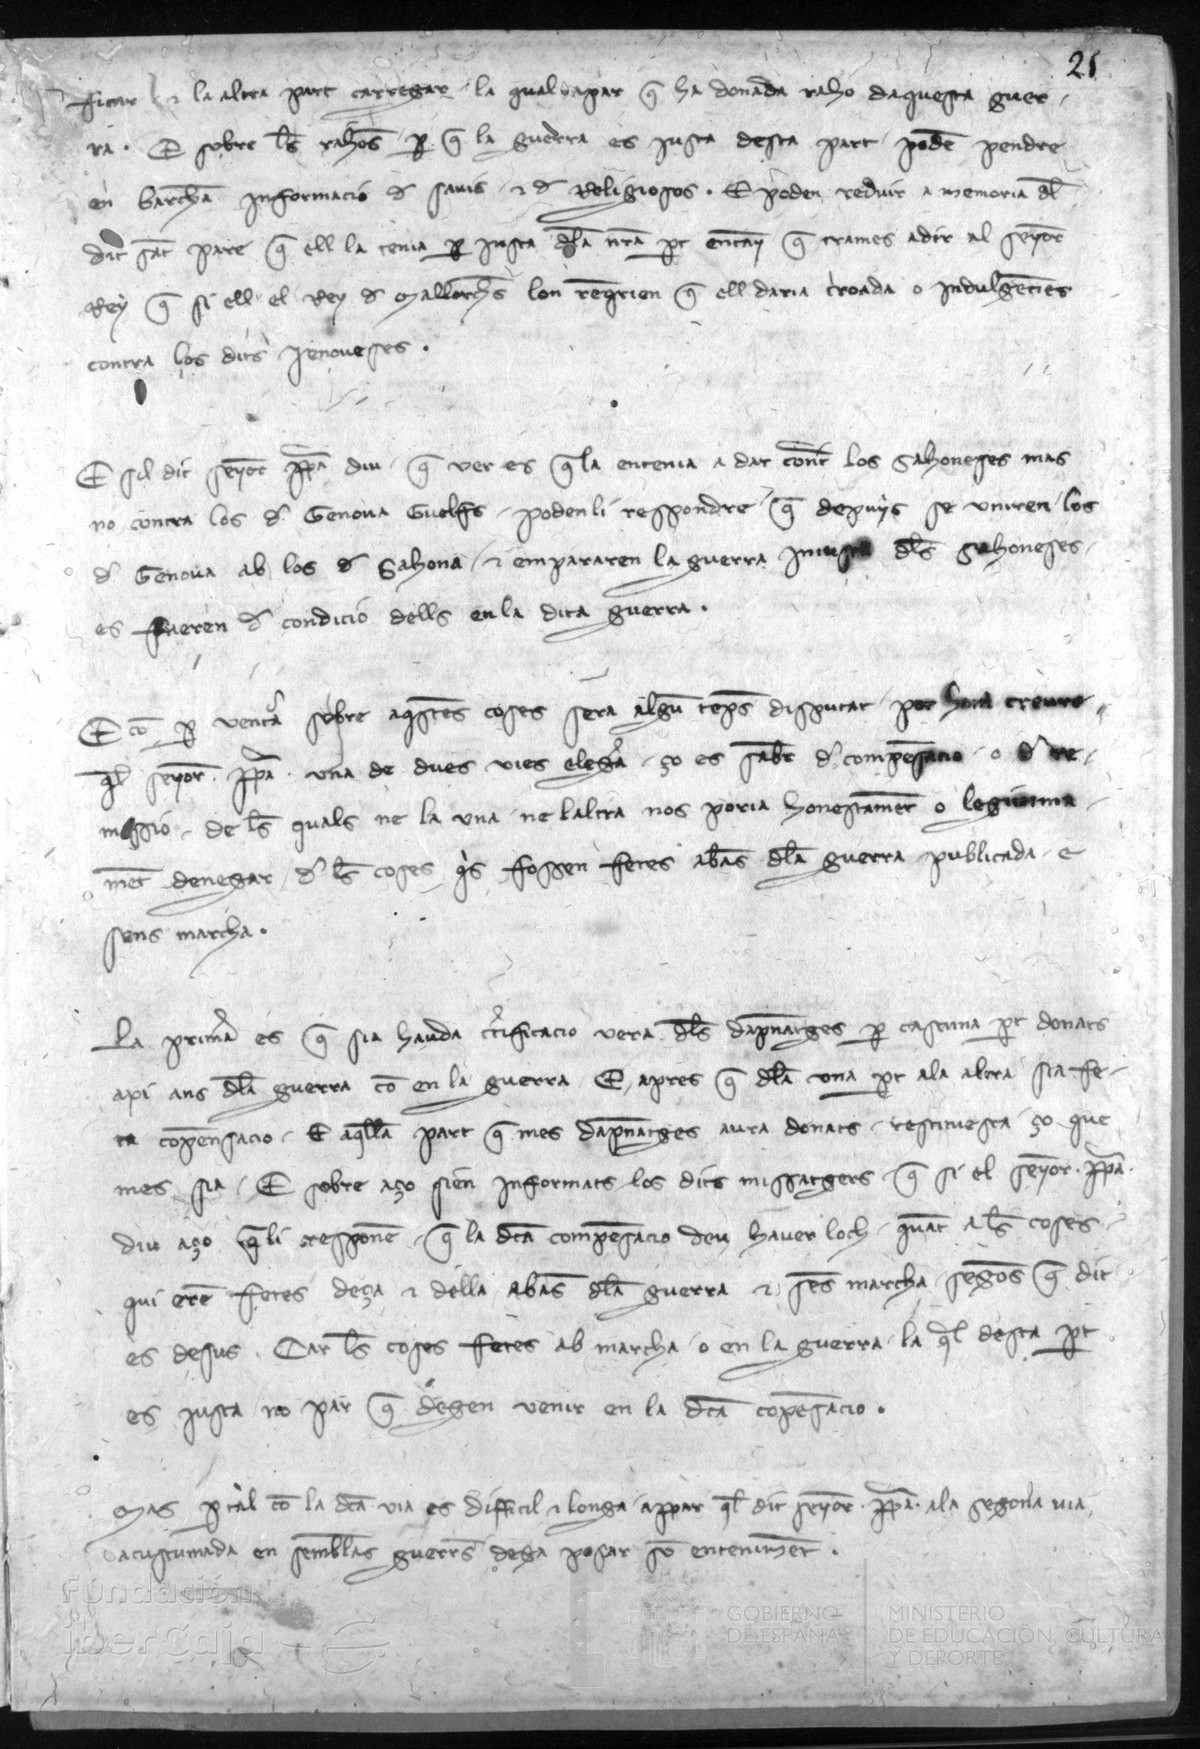 21
ficar & la altra part carregar la qual apar q̄ ha donada raho daquesta guer-
ra. E sobre l̄s rahōs p̱ q̄ la guerra es justa desta part podē pendre
en barchā informacio d̄ savis & d̄ Religiosos. E poden reduir a memoria dl̄
dit sāt pare q̄ ell la tenia p̱ justa dl̄a nr̄a p̱t en tāt q̄ trames a dir al senȳor
Rey q̄ si ell el Rey d̄ Mallorch̄s lon reqrien q̄ ell daria croada o indulgēcies
contra los dits jenoveses.
E sil dit senȳor pp̄a diu q̄ ver es q̄ la entenia a dar cont̄ los Sahoneses mas
no contra los d̄ Genova Guelfs podenli respondre q̄ depuys se uniren los
d̄ Genova ab los d̄ Sahona & empararen la guerra injusta dl̄s Sahoneses
es fueren d̄ condicio dells en la dita guerra.
E cō p̱ ventᵃ sobre aqstes coses sera algū tēps disputat pot hom creure
ql̄ senȳor pp̄a una de dues vies elegᵃ ço es sabr̄ d̄ compēsacio o d̄ re-
missio de l̄s quals ne la una ne laltra nos poria honestamēt o legittima-
mēt denegar d̄ l̄s coses qs̄ fossen fetes abās dl̄a guerra publicada e
sens marcha.
La primᵃ es q̄ sia hauda ctificacio vera dl̄s dapnatges p̱ cascuna p̱t donats
axi ans dl̄a guerra cō en la guerra E apres q̄ dl̄a una p̱t ala altra sia fe-
ta copensacio E aqll̄a part q̄ mes dapnatges aura donats restituesca ço que
mes sia E sobre aço sien informats los dits missatgers q̄ si el senȳor pp̄a
diu aço q̄ li responē q̄ la dc̄a compēsacio deu haver loch quāt a l̄s coses
qui erē fetes deça & della abās dl̄a guerra & sēs marcha segōs q̄ dit
es desus. Car l̄s coses fetes ab marcha o en la guerra la ql̄ desta p̱t
es justa no par q̄ degen venir en la dc̄a copēsacio.
Mas p̱ tal cō la dc̄a via es difficil & longa appar ql̄ dit senȳor pp̄a ala segona via
acustumada en sembl̄as guerrs̄ dega posar sō entenimēt.
Fundación
iberCaja
GOBIERNO
DE ESPAÑA
MINISTERIO
DE EDUCACIÓN, CULTURA
Y DEPORTE